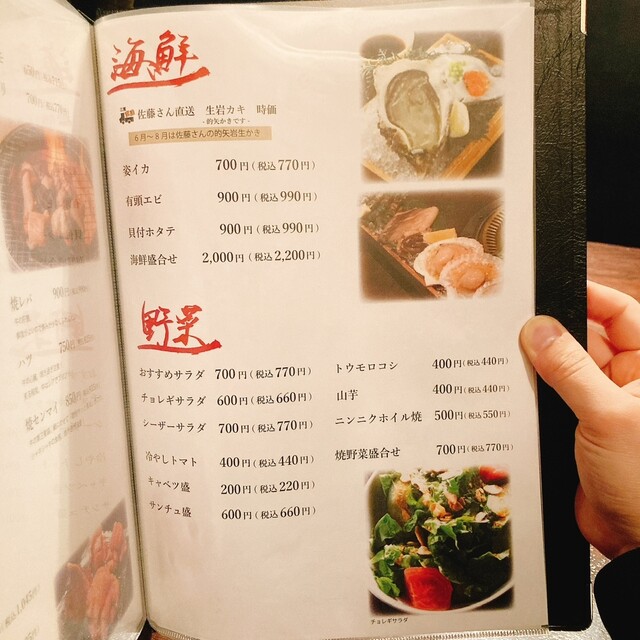 海鮮
佐藤さん直送 生岩カキ 時価
-的矢かきです-
6月〜8月は佐藤さんの的矢岩生かき
姿イカ 700円(税込770円)
有頭エビ 900円(税込990円)
貝付ホタテ 900円(税込990円)
海鮮盛合せ 2,000円(税込2,200円)
野菜
おすすめサラダ 700円(税込770円)
チョレギサラダ 600円(税込660円)
シーザーサラダ 700円(税込770円)
冷やしトマト 400円(税込440円)
キャベツ盛 200円(税込220円)
サンチュ盛 600円(税込660円)
トウモロコシ 400円(税込440円)
山芋 400円(税込440円)
ニンニクホイル焼 500円(税込550円)
焼野菜盛合せ 700円(税込770円)
チョレギサラダ
焼レバ 900円
ハツ 750円
焼センマイ 850円